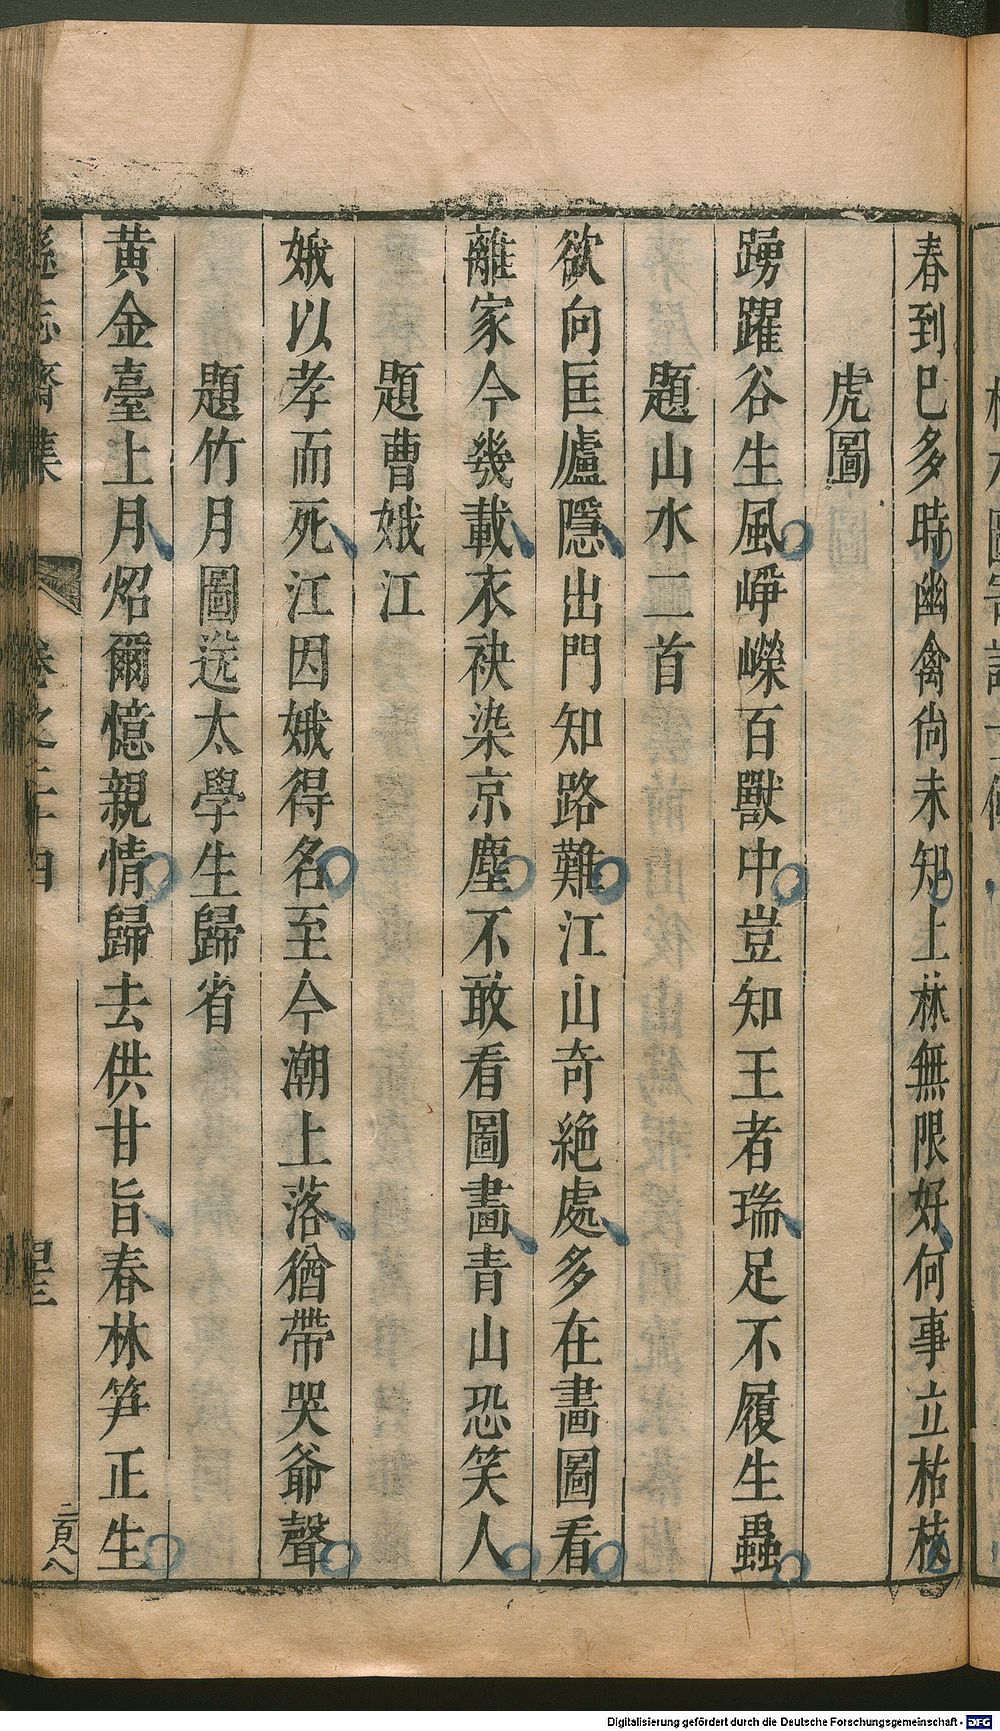 春到已多時幽禽尚未知上林無限好何事立枯枝
虎圖
踴躍谷生風崢嶸百獸中豈知王者瑞足不履生蟲
題山水二首
欲向匡廬隱出門知路難江山奇絕處多在畫圖看
離家今幾載衣袂染京塵不敢看圖畫青山恐笑人
題曹娥江
娥以孝而死江因娥得名至今潮上落猶帶哭爺聲
題竹月圖送太學生歸省
黃金臺上月炤爾憶親情歸去供甘旨春林笋正生
遜志齋集
卷之二十四
二百八
Digitalisierung gefördert durch die Deutsche Forschungsgemeinschaft - DFG